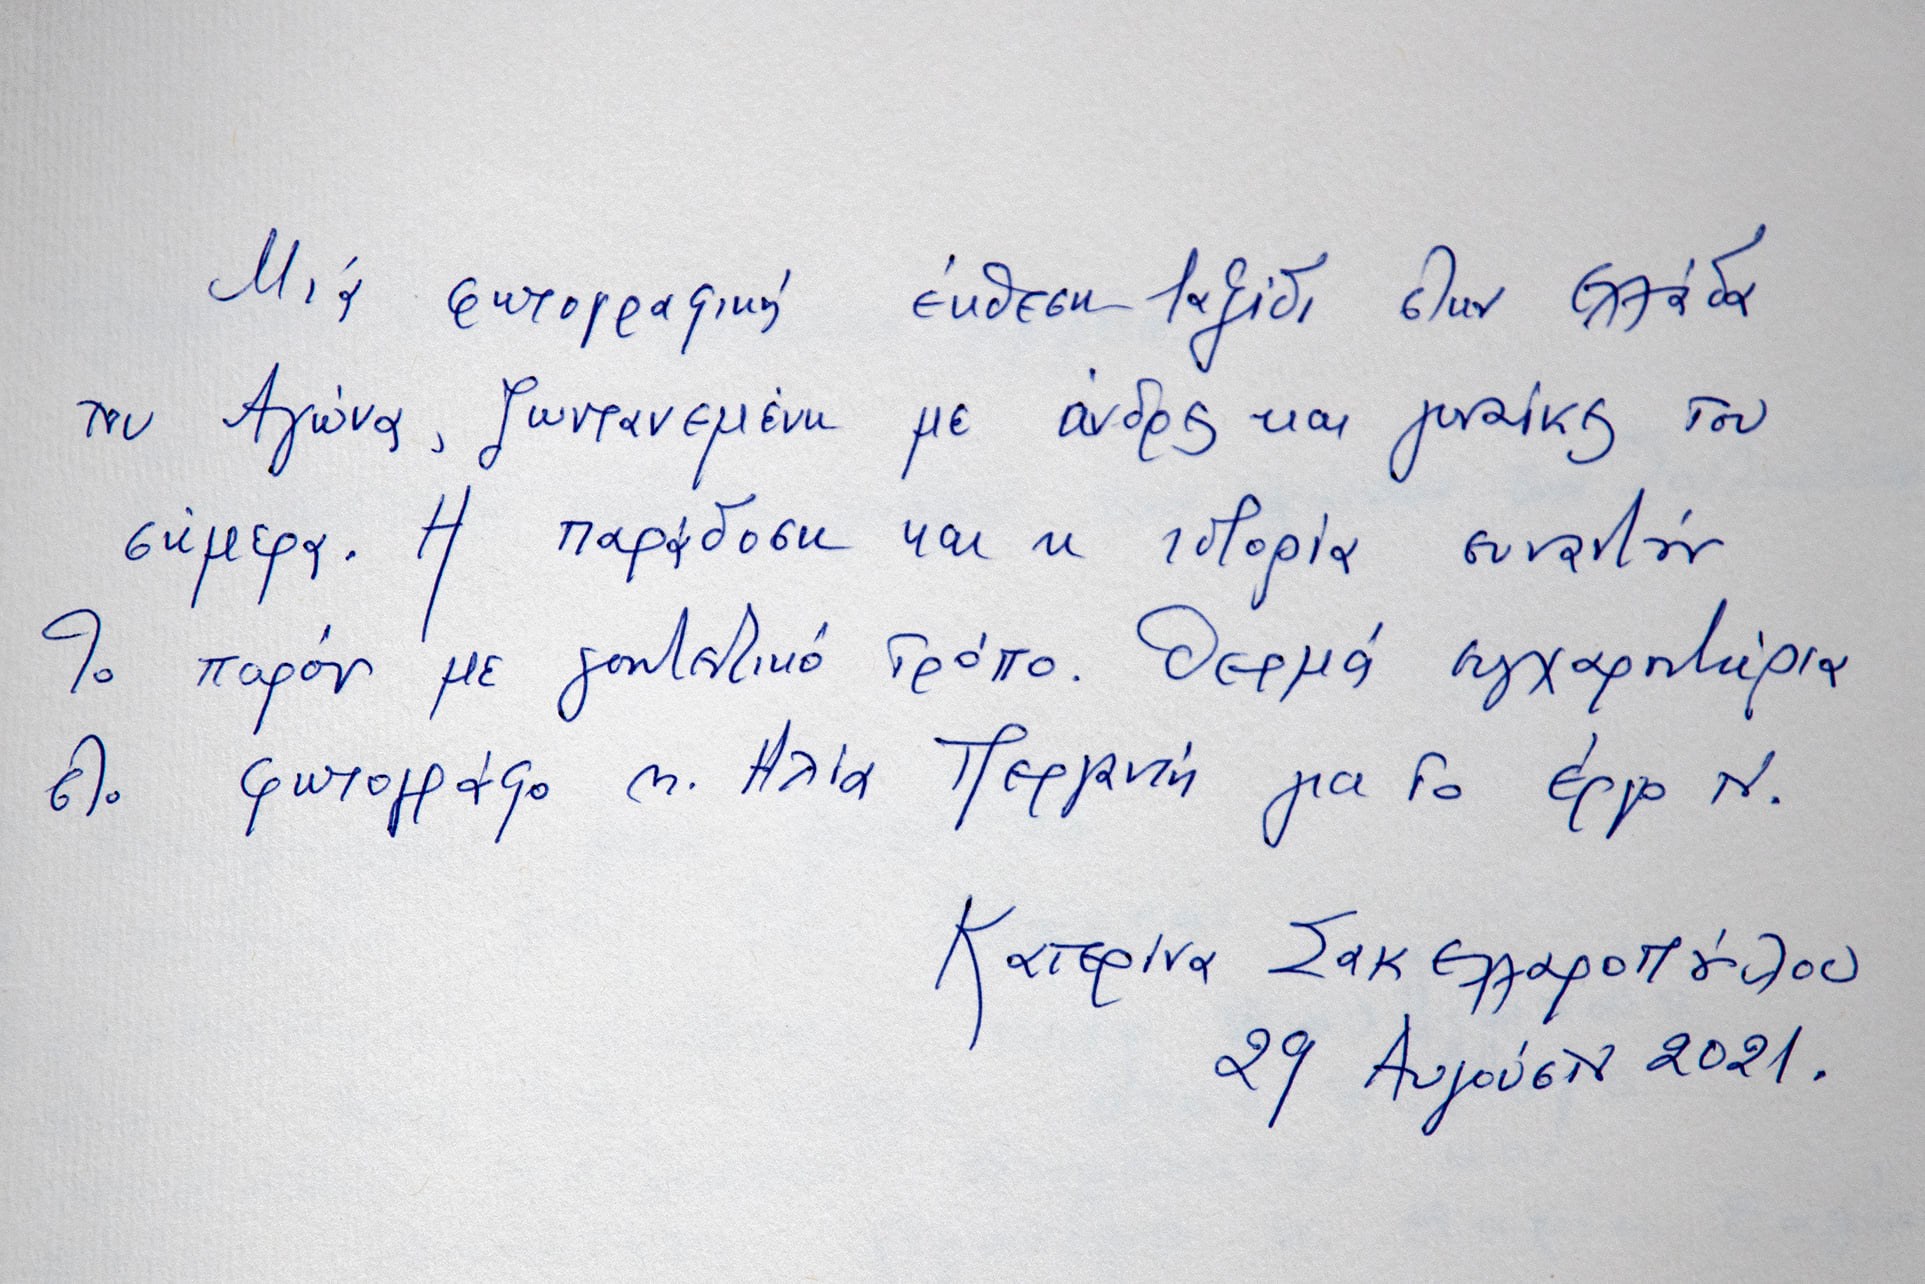 Μιά φωτογραφική έκθεση-ταξίδι στην Ελλάδα
του Αγώνα, ζωντανεμένη με άνδρες και γυναίκες του
σήμερα. Η παράδοση και η ιστορία συναντούν
το παρόν με γοητευτικό τρόπο. Θερμά συγχαρητήρια
στο φωτογράφο κ. Ηλία Περγαντή για το έργο του.
Κατερίνα Σακελλαροπούλου
29 Αυγούστου 2021.